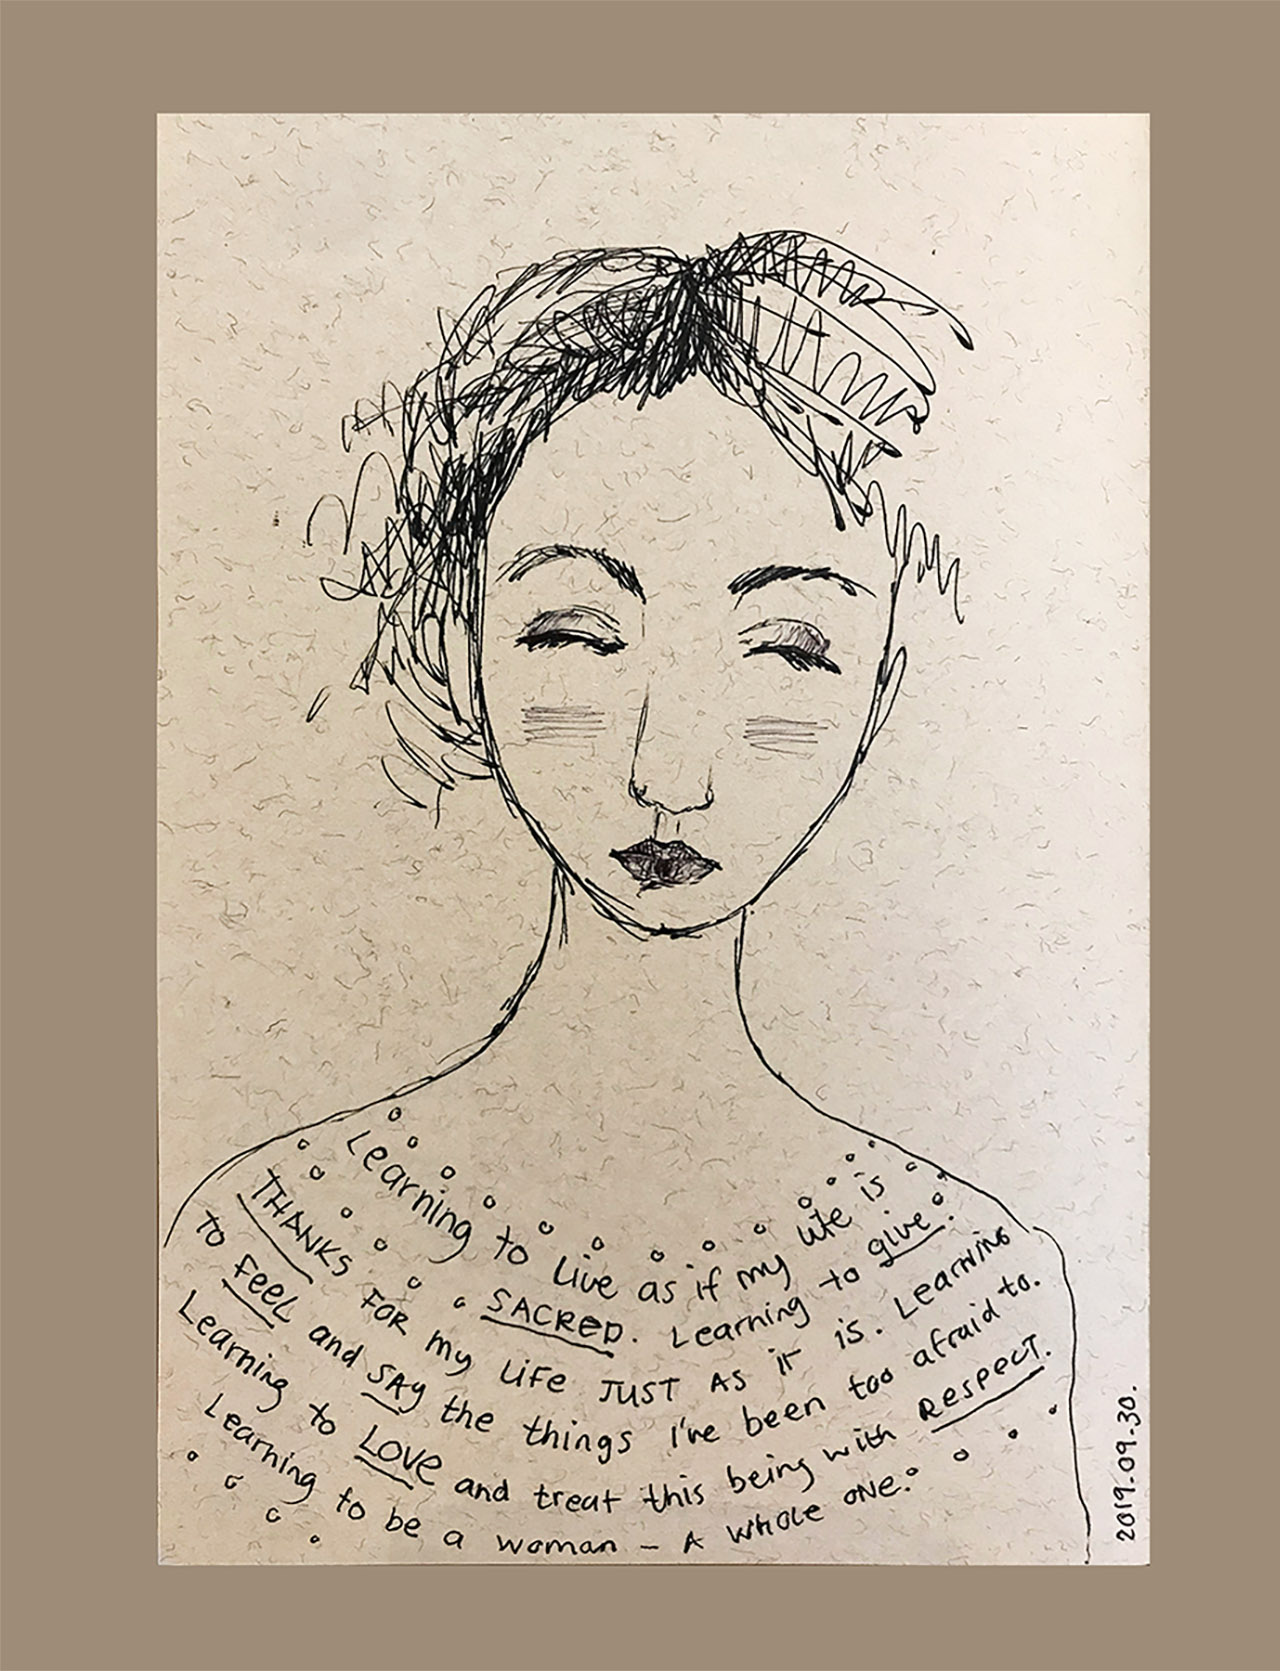 Learning to Live as if my life is
SACRED. Learning to give.
THANKS FOR my LIFE JUST AS iT is. Learning
to FeeL and SAy the things I've been too afraid to.
Learning to LOVE and treat this being with RespecT.
Learning to be a woman – A whole oNe.
2019.09.30.